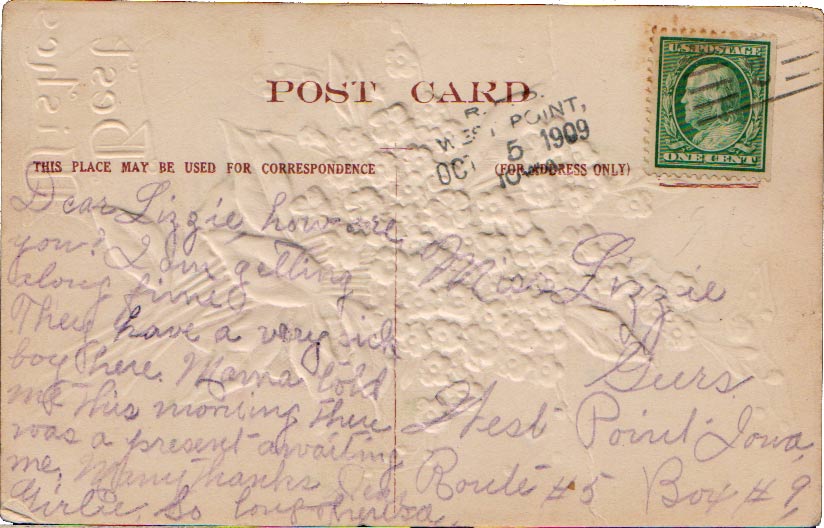 POST CARD
THIS PLACE MAY BE USED FOR CORRESPONDENCE
(FOR ADDRESS ONLY)
U.S. POSTAGE
ONE CENT
WEST POINT,
OCT 5 1909
IOWA
Best
Dear Lizzie, how are
you? I am getting
along fine
They have a very sick
boy there. Mama told
me this morning there
was a present awaiting
me. Many thanks Dear
Girlie, So long
Miss Lizzie
Geers
West Point Iowa,
Route #5 Box #9,